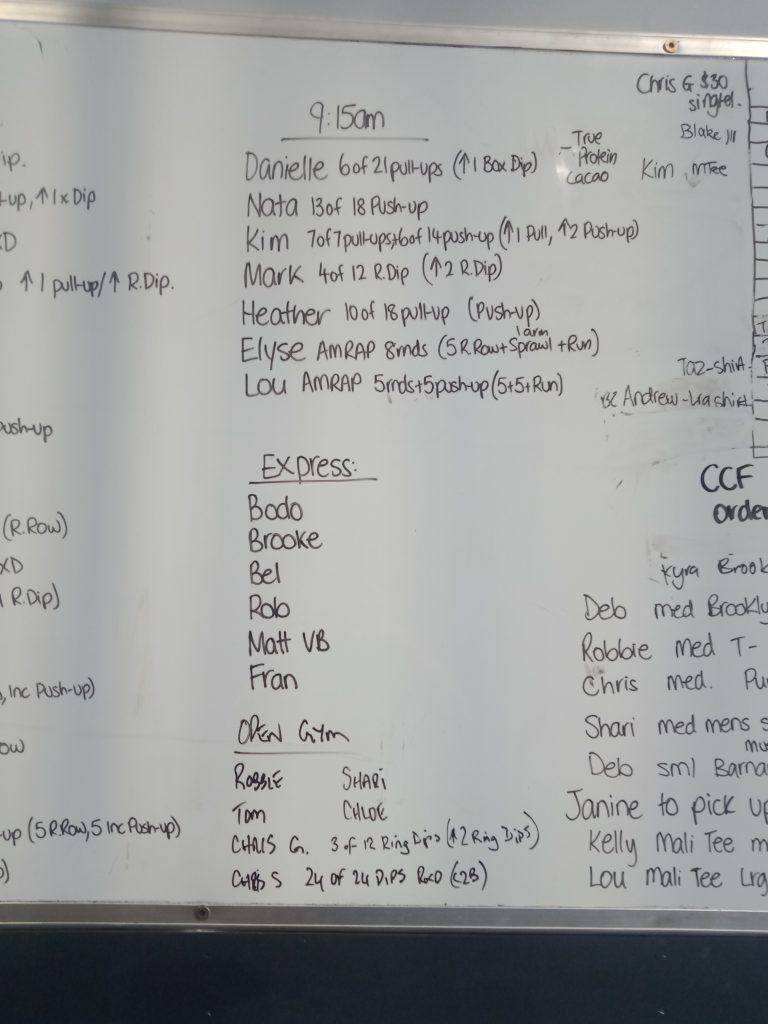 ip.
-up, ↑1x Dip
XD
↑1 pull-up/↑ R.Dip.
Push-up
(R.Row)
XD
R.Dip)
, Inc Push-up)
ow
-up (5 R.Row, 5 Inc Push-up)
9:15am
Danielle 6 of 21 pull-ups (↑1 Box Dip)
Nata 13 of 18 Push-up
Kim 7 of 7 pull-ups + 6 of 14 push-up (↑1 Pull, ↑2 Push-up)
Mark 4 of 12 R.Dip (↑2 R.Dip)
Heather 10 of 18 pull-up (Push-up)
Elyse AMRAP 8rnds (5 R.Row + 1 arm Sprawl + Run)
Lou AMRAP 5rnds + 5 push-up (5+5+Run)
Express:
Bodo
Brooke
Bel
Rob
Matt VB
Fran
OPEN GYM
ROBBIE SHARI
TOM CHLOE
CHRIS G. 3 of 12 Ring Dips (↑2 Ring Dips)
CHRIS S 24 of 24 DIPS RXD
- True
Protein
Cacao
Chris G $30
singlet.
Blake
Kim MTee
Taz-shirt
Andrew
CCF
order
Kyra Brook
Deb med Brookly
Robbie med T-
Chris med. Pu
Shari med mens s
mu
Deb sml Barna
Janine to pick up
Kelly Mali Tee m
Lou Mali Tee Lrg